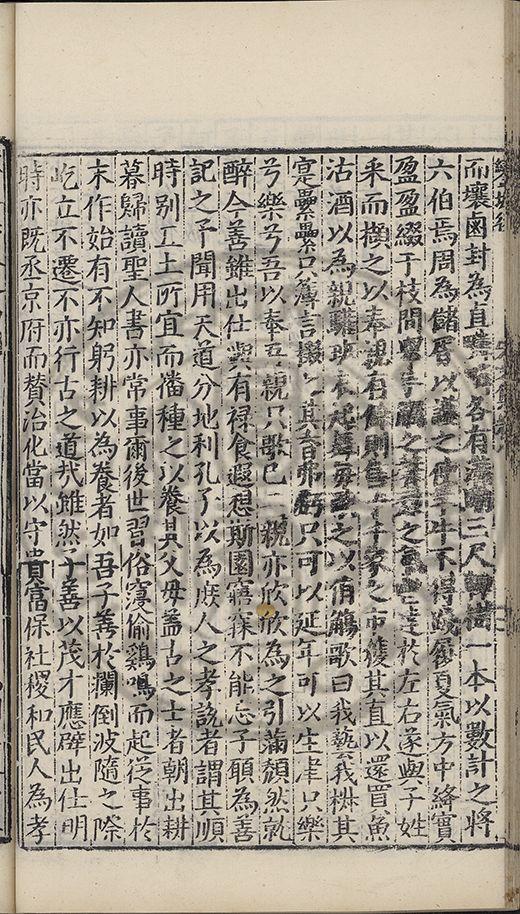 而壤鹵封為直畦畦各有溝溝三尺許樹一本以數計之將
六伯焉周為儲胥以護之使羊牛不得踐履夏氣方中絳實
盈盈綴于枝間與子之達於左右遂與子姓
采而擷之以奉親有餘則售于千家之市獲其直以還置魚
沽酒以為親驩班衣起舞每跪之以侑觴歌曰我藝我椕其
寔纍纍只薄言擷之其香弗虧只可以延年可以生津只樂
兮樂兮吾以奉吾親只歌已二親亦欣欣為之引滿頹然就
醉今善雖出仕與有禄食遐想斯園寤寐不能忘子頤為善
記之予聞用天道分地利孔子以為庶人之孝說者謂其順
時別五土所宜而播種之以養其父母蓋古之士者朝出耕
暮歸讀聖人書亦常事爾後世習俗寖偷鷄鳴而起從事於
末作始有不知躬耕以為養者如吾子善於瀾倒波隨之際
屹立不遷不亦行古之道哉雖然子善以茂才應辟出仕明
時亦既丞京府而贊治化當以守貴富保社稷和民人為孝